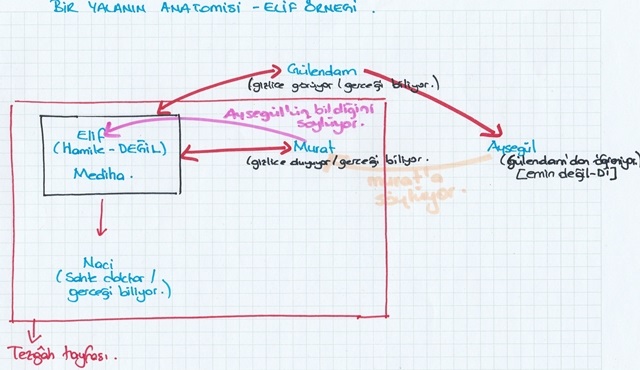 BİR YALANIN ANATOMİSİ - ELİF ÖRNEĞİ.
Gülendam
(gizlice görüyor / gerçeği biliyor.)
Ayşegül'ün bildiğini
söylüyor.
Elif
(Hamile - DEĞİL)
Mediha.
Murat
(gizlice duyuyor / gerçeği biliyor.
Ayşegül
(Gülendam'dan öğreniyor)
[emin değil-Dİ]
Murat'a
söylüyor.
Naci
(Sahte doktor /
gerçeği biliyor.)
Tezgâh tayfası.